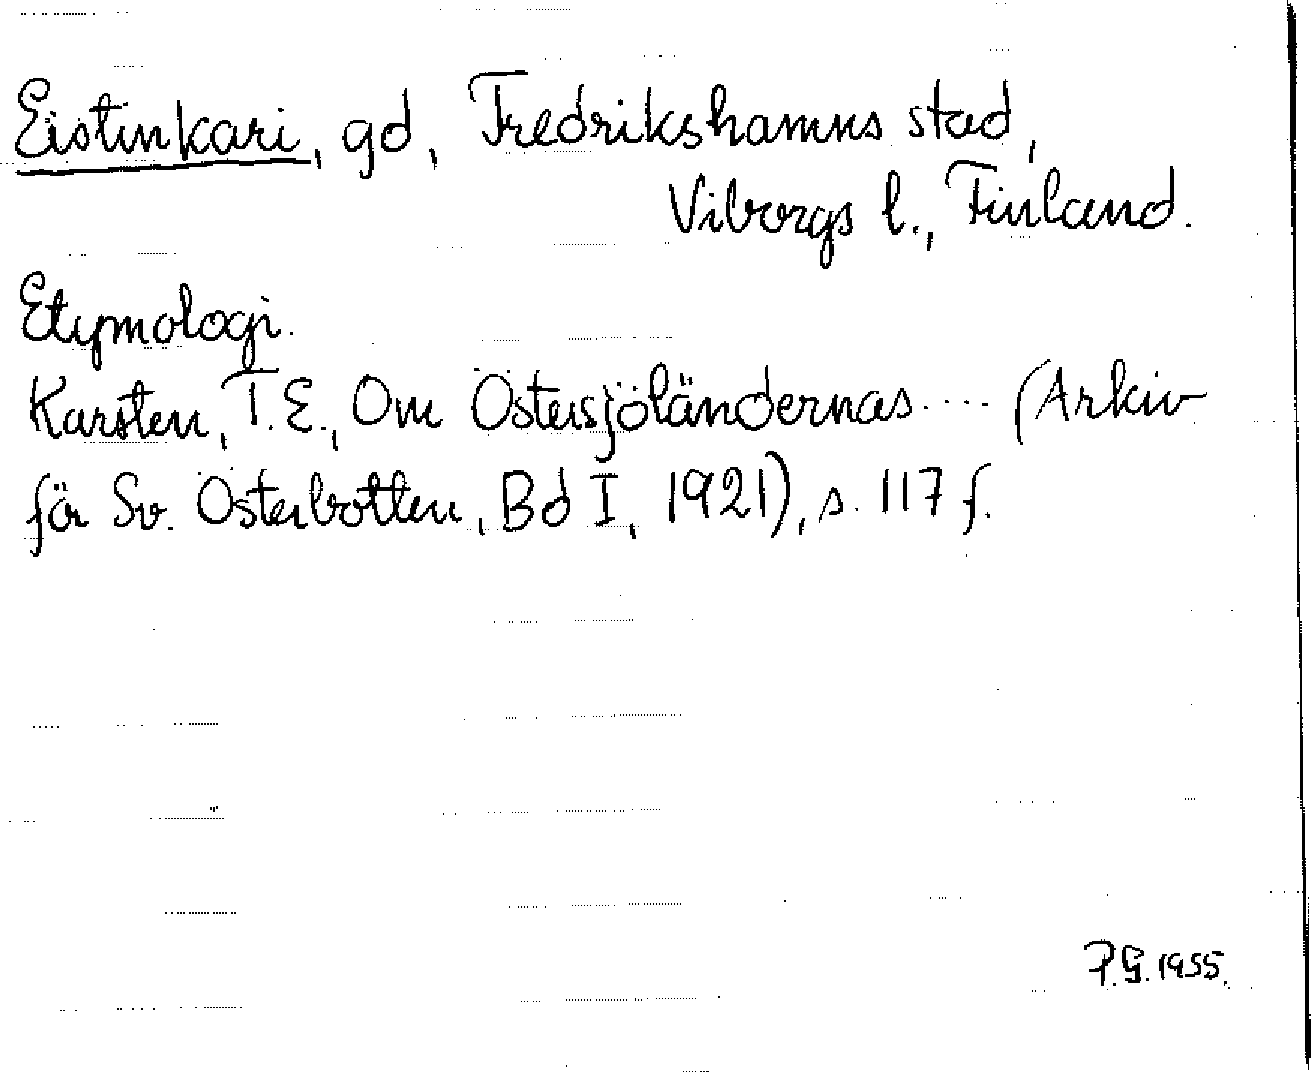 Eistinkari, gd, Fredrikshamns stad,
Viborgs l., Finland.
Etymologi.
Karsten, T.E., Om Östersjöländernas .... (Arkiv
för Sv. Österbotten, Bd I, 1921), s. 117 f.
P.G. 1955.